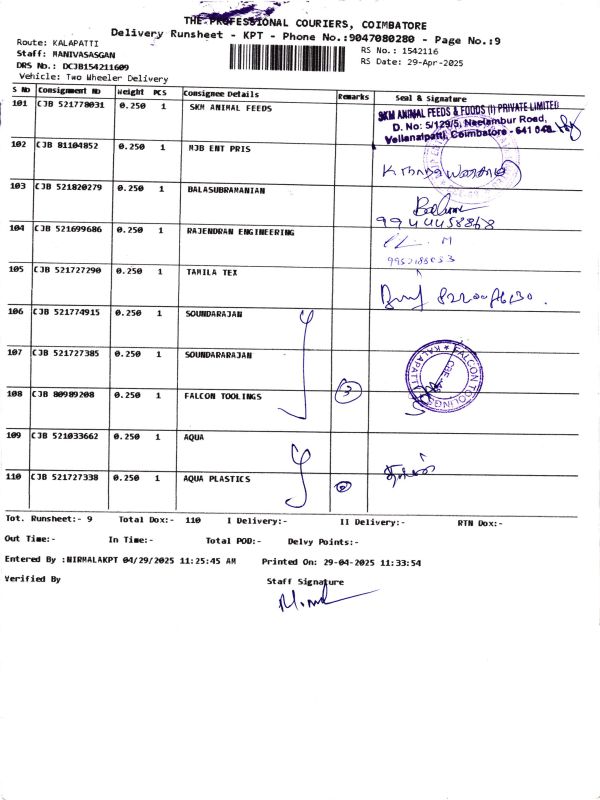 THE PROFESSIONAL COURIERS, COIMBATORE
Delivery Runsheet - KPT - Phone No.:9047080280 - Page No.:9
Route: KALAPATTI
RS No.: 1542116
Staff: MANIVASASGAN
RS Date: 29-Apr-2025
DRS No.: DCJB154211609
Vehicle: Two Wheeler Delivery
S No Consignment No Weight PCS Consignee Details Remarks Seal & Signature
101 CJB 521778031 0.250 1 SKM ANIMAL FEEDS
SKM ANIMAL FEEDS & FOODS (I) PRIVATE LIMITED
D. No: 5/129/5, Naelambur Road,
Vellanaipatti, Coimbatore - 641 048.
102 CJB 81104852 0.250 1 MJB ENT PRIS
103 CJB 521820279 0.250 1 BALASUBRAMANIAN
9944458868
104 CJB 521699686 0.250 1 RAJENDRAN ENGINEERING
105 CJB 521727290 0.250 1 TAMILA TEX
106 CJB 521774915 0.250 1 SOUNDARAJAN
107 CJB 521727385 0.250 1 SOUNDARARAJAN
108 CJB 80989208 0.250 1 FALCON TOOLINGS 3
FALCON TOOLINGS ★ KALAPATTI
CBE
109 CJB 521033662 0.250 1 AQUA
110 CJB 521727338 0.250 1 AQUA PLASTICS
Tot. Runsheet:- 9 Total Dox:- 110 I Delivery:- II Delivery:- RTN Dox:-
Out Time:- In Time:- Total POD:- Delvy Points:-
Entered By :NIRMALAKPT 04/29/2025 11:25:45 AM Printed On: 29-04-2025 11:33:54
Verified By Staff Signature